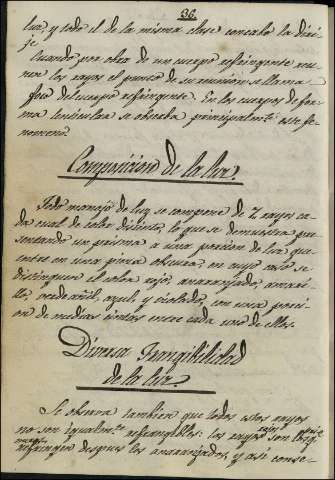 36.
luz, y todo el de la misma clase concabo la diri-
je
Cuando por obra de un cuerpo refringente reu-
nen los rayos el punto de su reunion se llama
foco del cuerpo refringente. En los cuerpos de for-
ma lenticular se observa principalmte este fe-
nomeno.
Composicion de la luz.
Todo manojo de luz se compone de 7 rayos ca-
da cual de color distinto, lo que se demuestra pre-
sentando un prisma a una porcion de luz que
entre en una pieza obscura, en cuyo caso se
distinguen el color rojo, anaranjado, amari-
llo, verde añil, azul y violado, con una porci-
on de medias tintas entre cada uno de ellos.
Diversa Frangibilidad
de la luz.
Se observa tambien que todos estos rayos
no son igualmte refrangibles: los rayos rojos son los que
refringen despues los anaranjados, y asi conse-